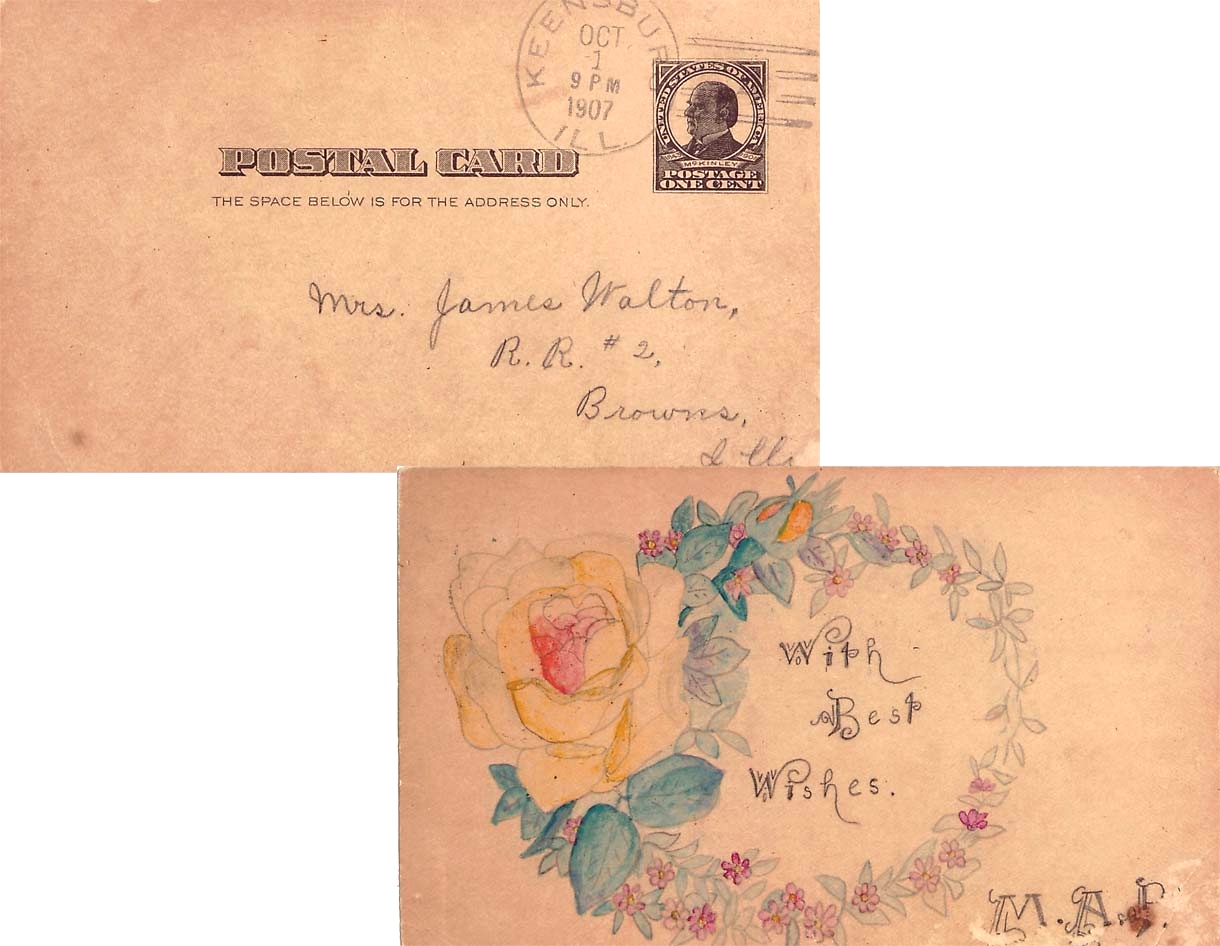 KEENSBURG
OCT
1
9 PM
1907
ILL.
UNITED STATES OF AMERICA
McKINLEY
POSTAGE
ONE CENT
POSTAL CARD
THE SPACE BELOW IS FOR THE ADDRESS ONLY.
Mrs. James Walton,
R. R. # 2,
Browns,
Ills
With
Best
Wishes.
M.A.F.